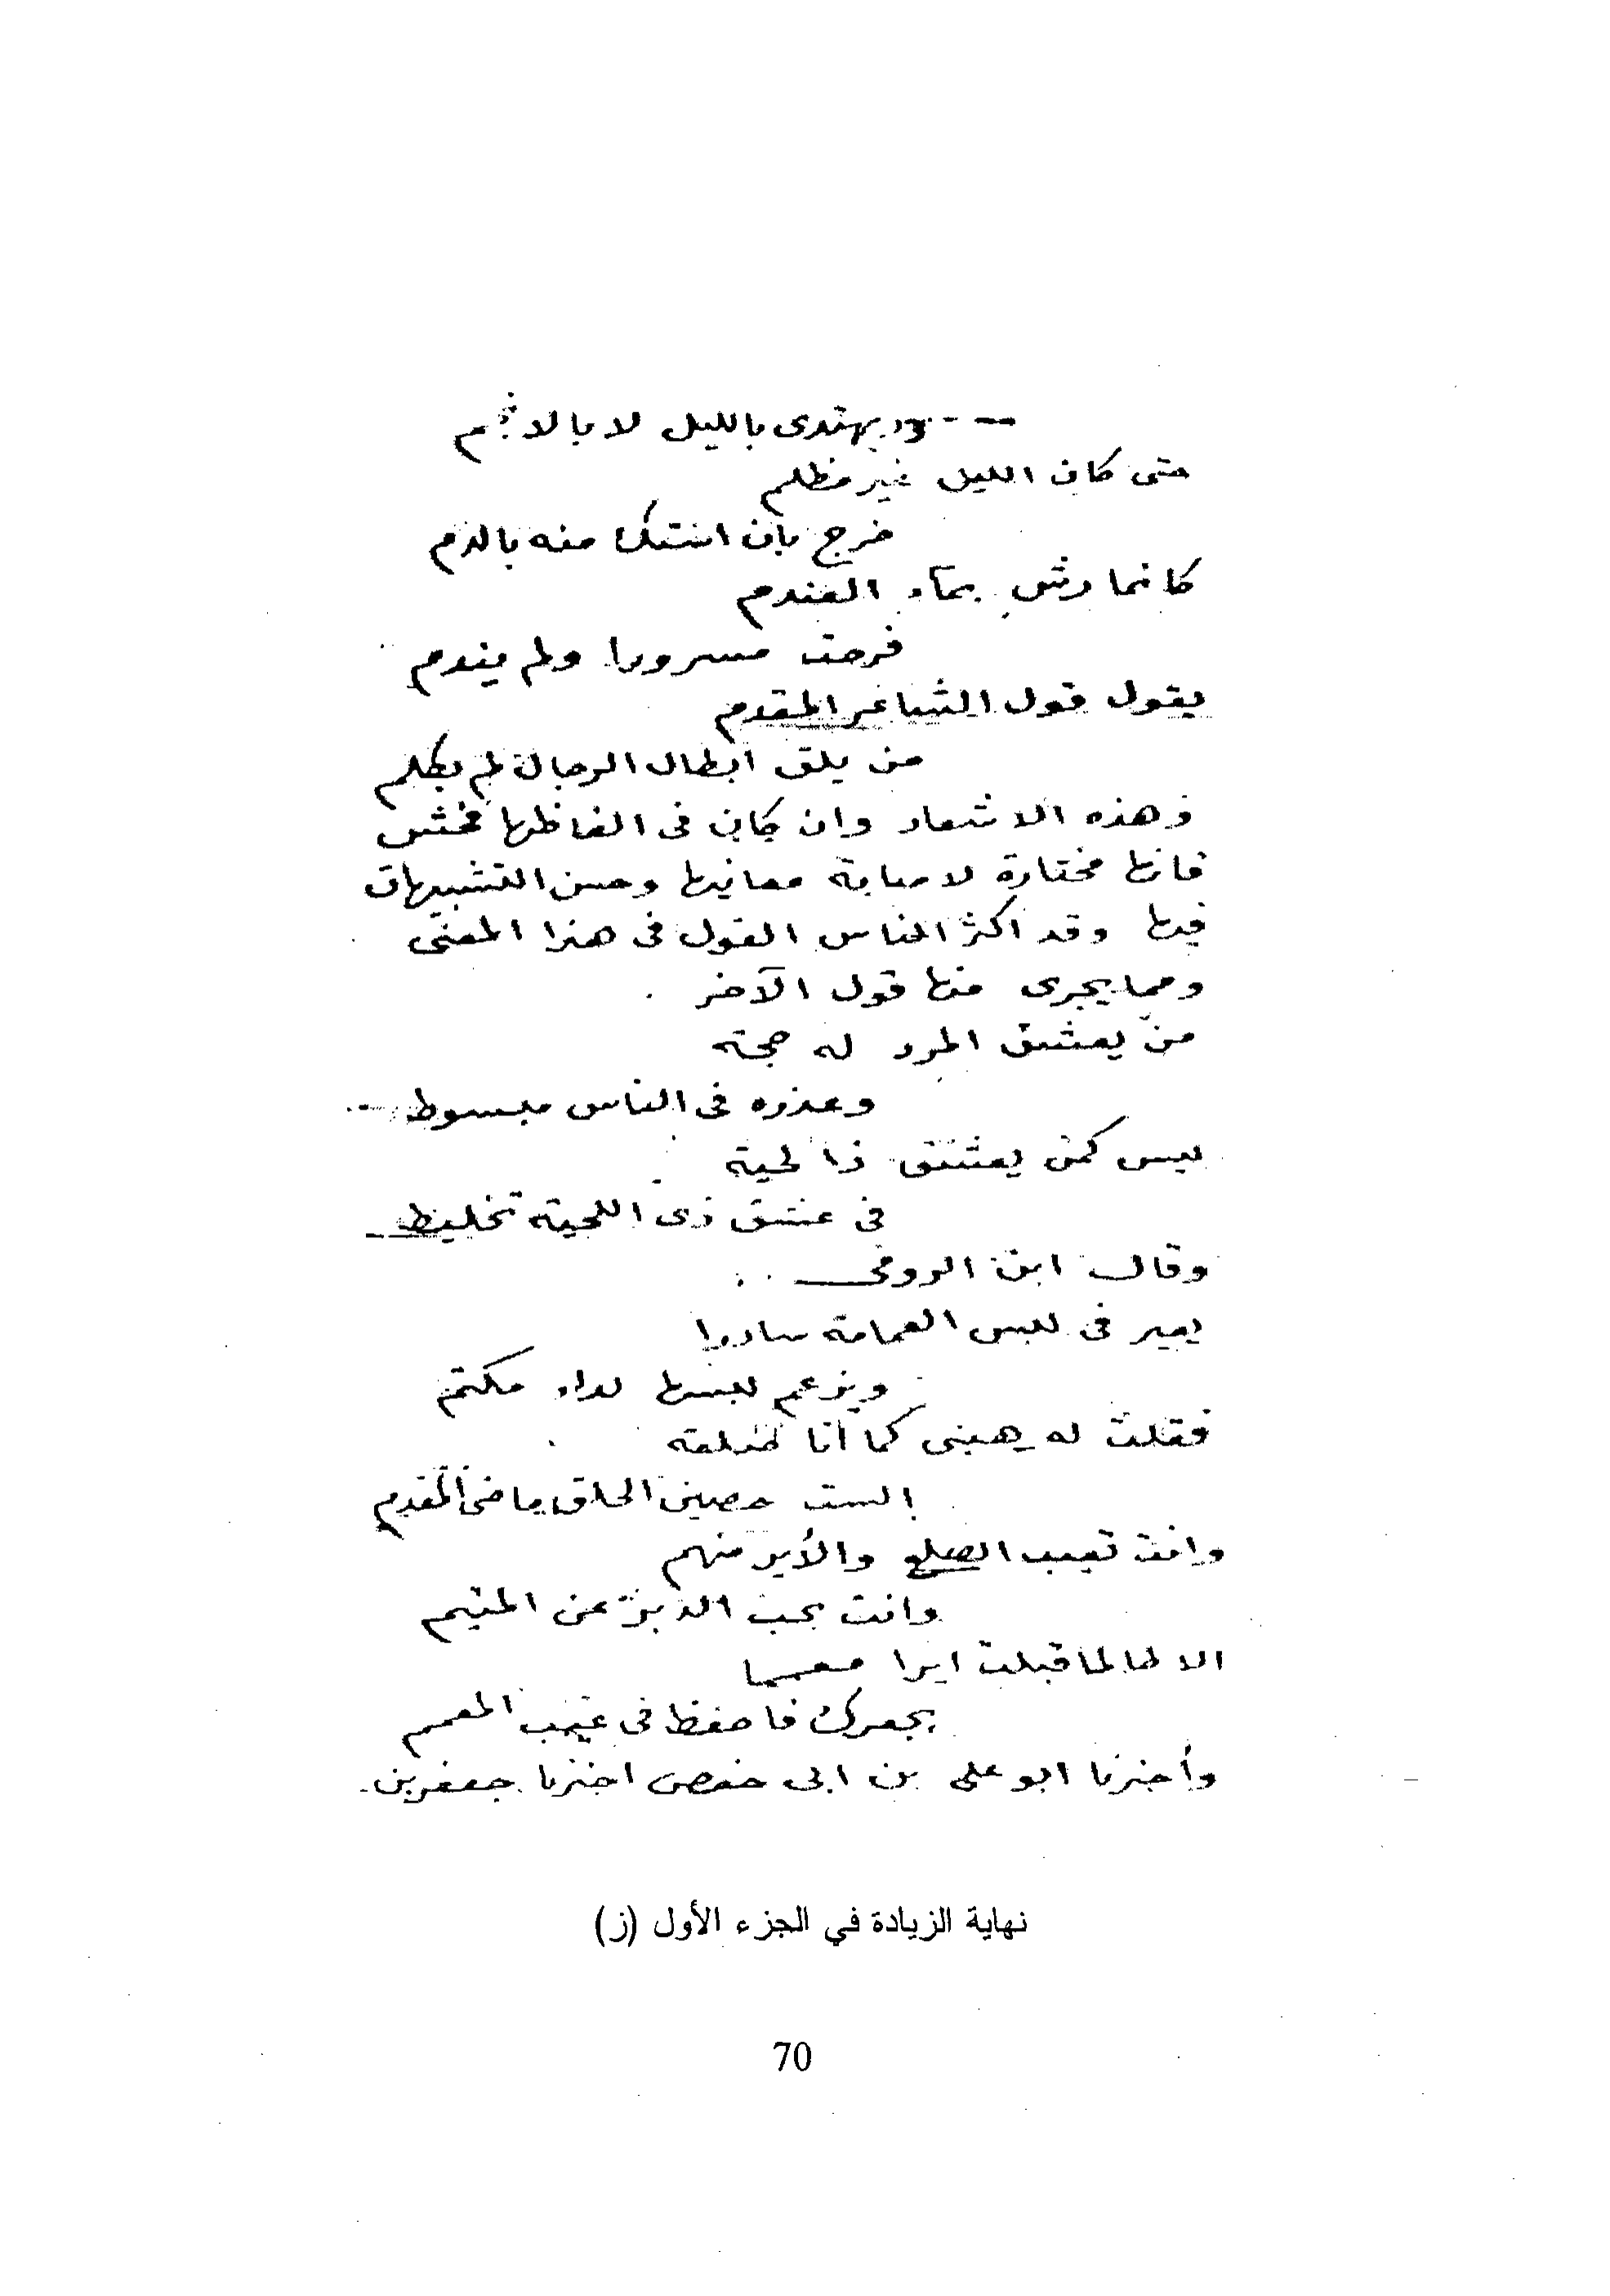 ويهتدى بالليل لا بالانجم
حتى كان الليل غير مظلم
خرج بان منه بالدم
كانما رش بمآء العندم
فرحت مسرورا ولم يندم
يقول قول الشاعر المقدم
من يلق ابطال الرجال لم يكلم
وهذه الاشعار وان كان فى الفاظها فحش
فانها مختارة لاصابة معانيها وحسن التشبيهات
فيها وقد اكثر الناس القول فى هذا المعنى
ومما يجرى منها قول الآخر
من يعشق المرد له حجته
وعذره فى الناس مبسوط
ليس كمن يعشق ذا لحية
فى عشق ذى اللحية تخليط
وقال ابن الرومى
يعير فى لبس العمامة سادرا
ويزعم لبسها لداء مكتم
فقلت له هبنى كما أنا
الست حصين الحلق ماضى المقدم
وانت تعيب الصلع والأير منهم
وانت بحب الدبر عن المتيم
الا لما قبلت ايرا معمما
بجعرك فاحفظ فى عيب المعمم
وأخبرنا ابو على بن ابى حفص اخبرنا جعفر بن
نهاية الزيادة في الجزء الأول (ز)
70